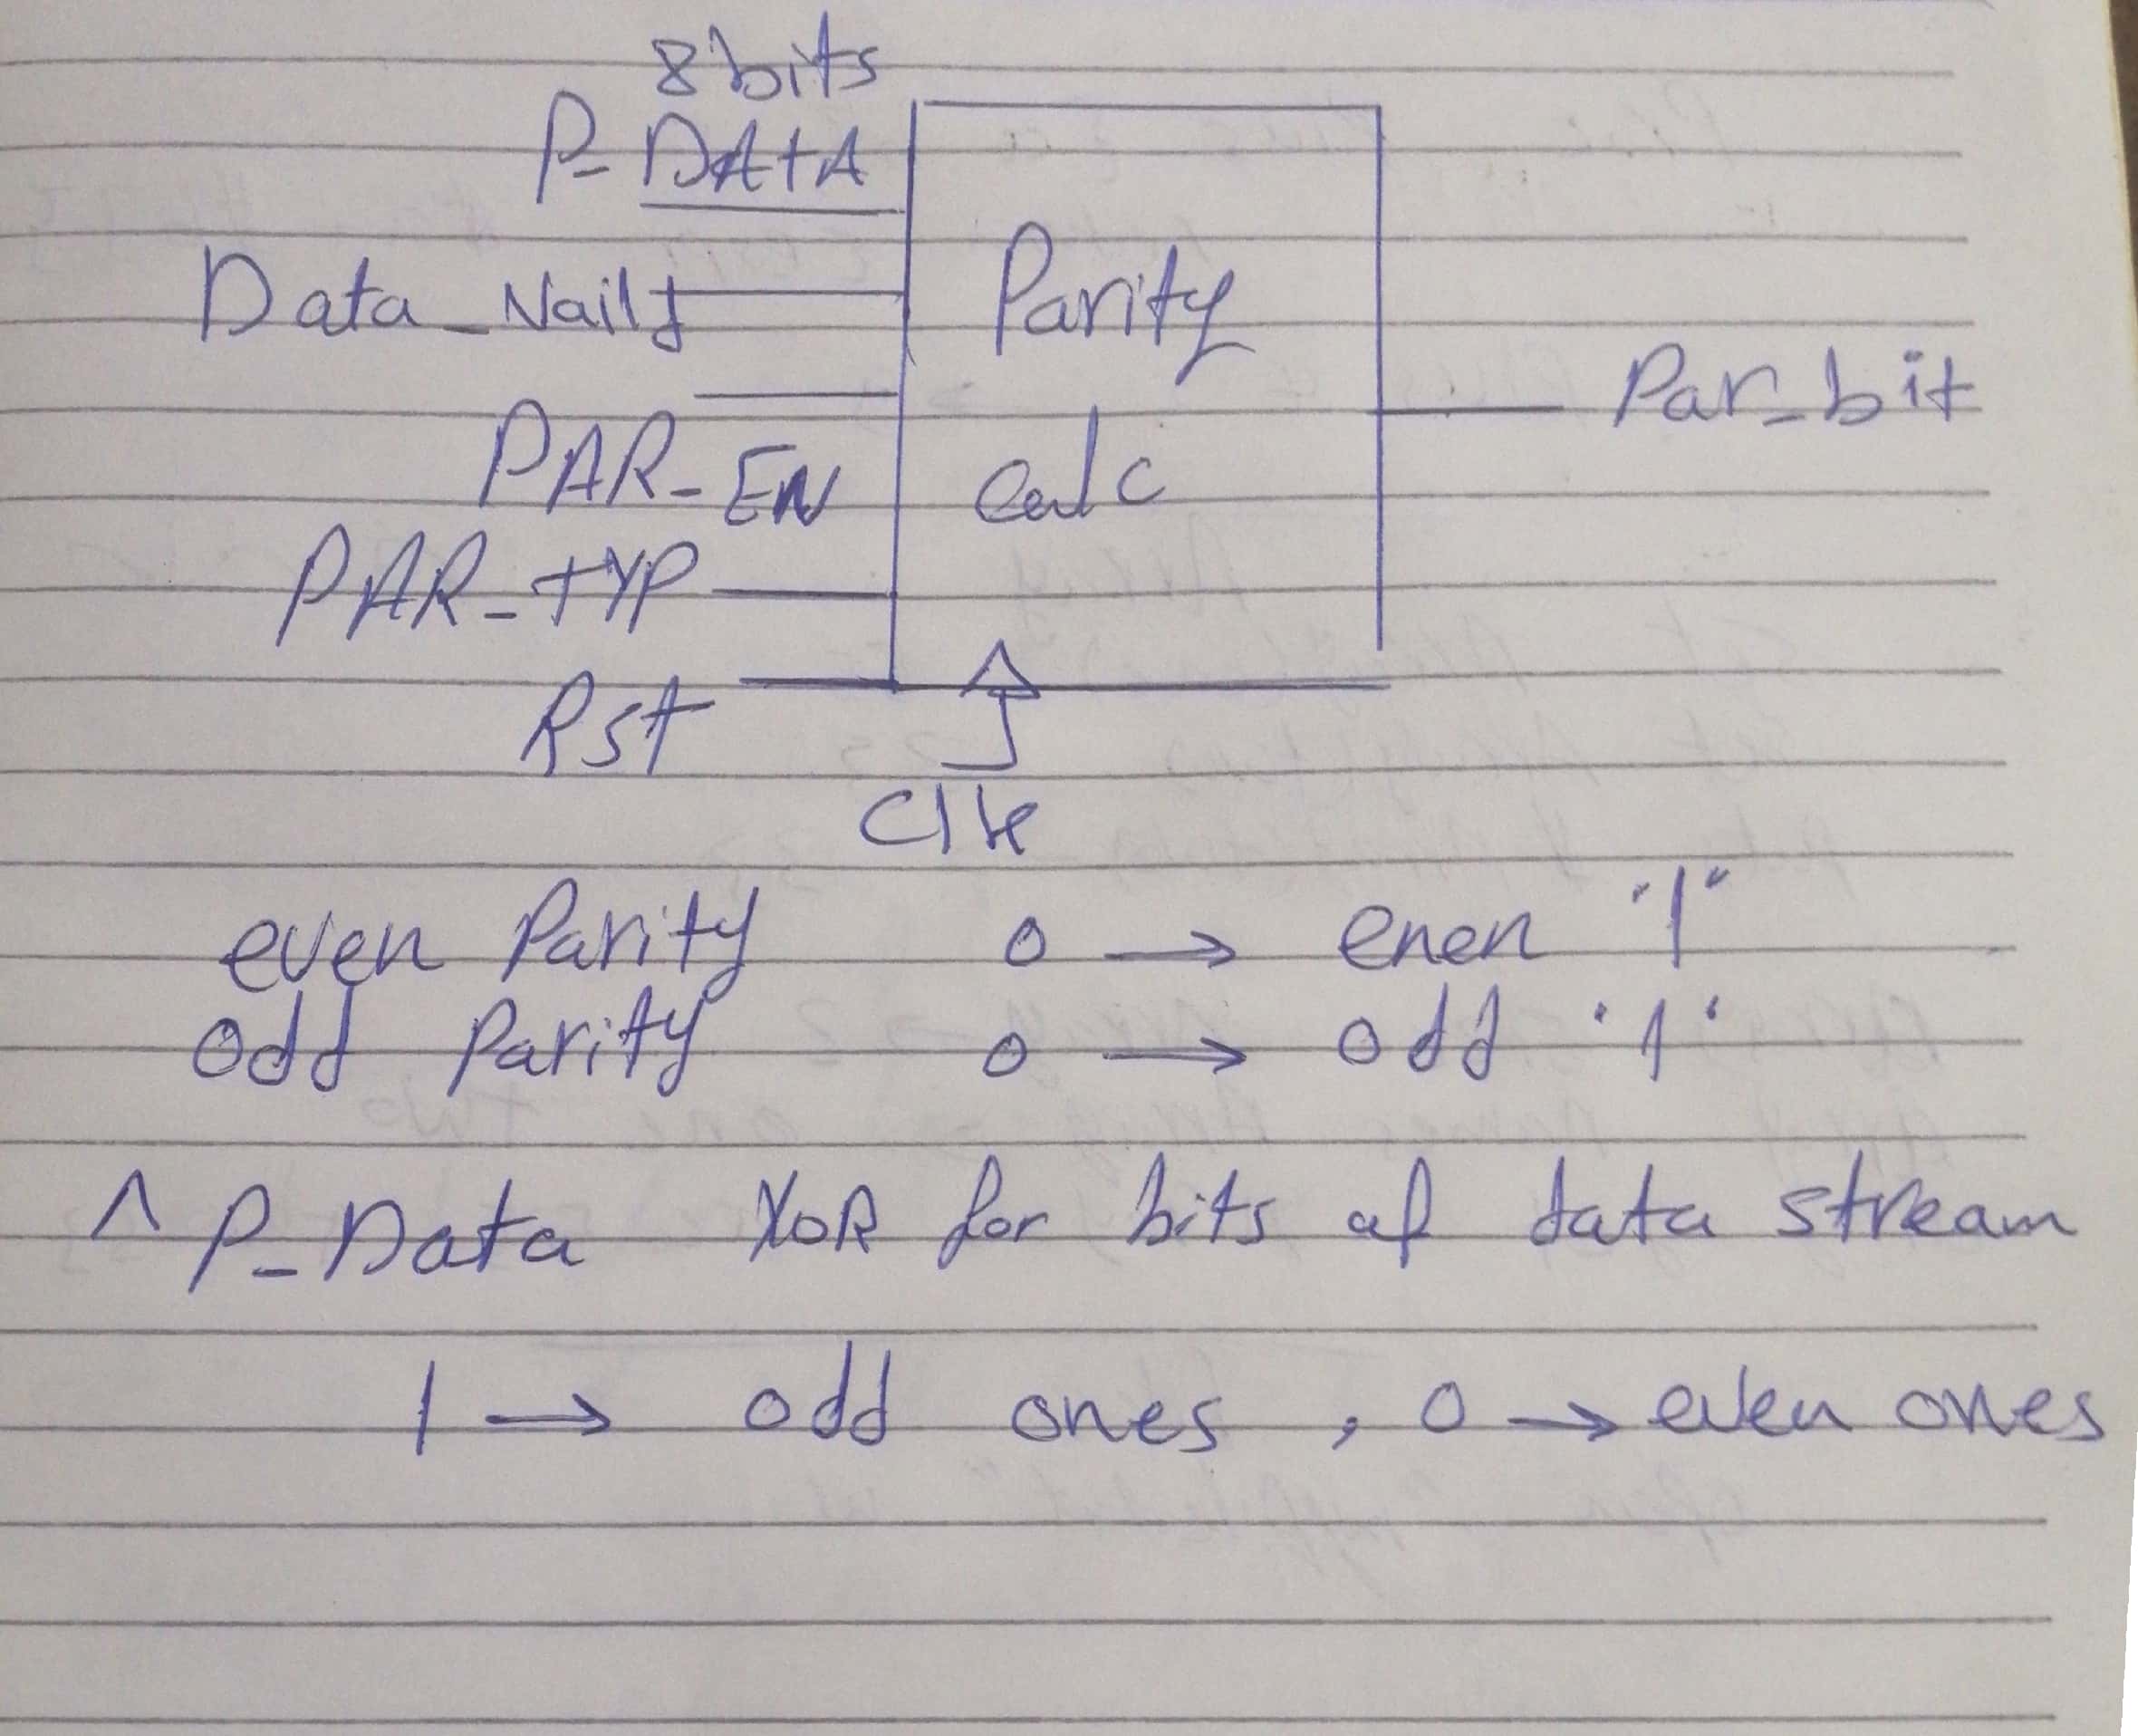 8bits
P_DATA
Data_Valid
Parity
Par_bit
PAR_EN
calc
PAR_TYP
Rst
Clk
even Parity 0 → even "1"
odd Parity 0 → odd "1"
^ P_Data XOR for bits of data stream
1 → odd ones , 0 → even ones